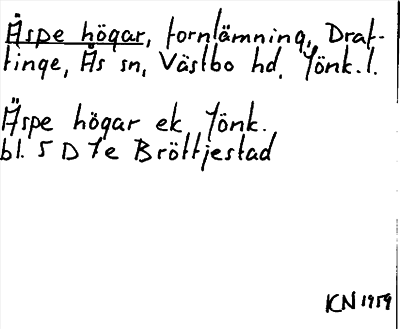 Äspe högar, fornlämning, Draf-
tinge, Ås sn, Västbo hd, Jönk. l.
Äspe högar ek Jönk.
bl. 5 D 7e Bröttjestad
KN 1959